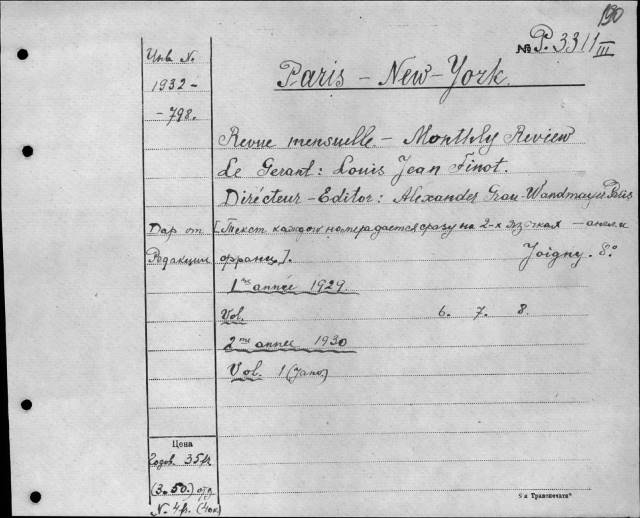 190
№ P.3311 III
Инв N.
1932 -
- 798.
Paris - New-York.
Revue mensuelle. - Monthly Review
Le Gerant: Louis Jean Finot.
Dirécteur - Editor: Alexander Grau-Wandmayer. Paris
Дар от
Редакции
[Текст каждого номера дается сразу на 2-х языках - англ. и
франц.].
Joigny. 8°
1re année 1929.
Vol. 6. 7. 8.
2me année 1930
Vol. 1 (Janv.)
Цена
Годов. 35 fr
(3.50.) отд
N. 4 fr. (40к)
9-я Транспечать